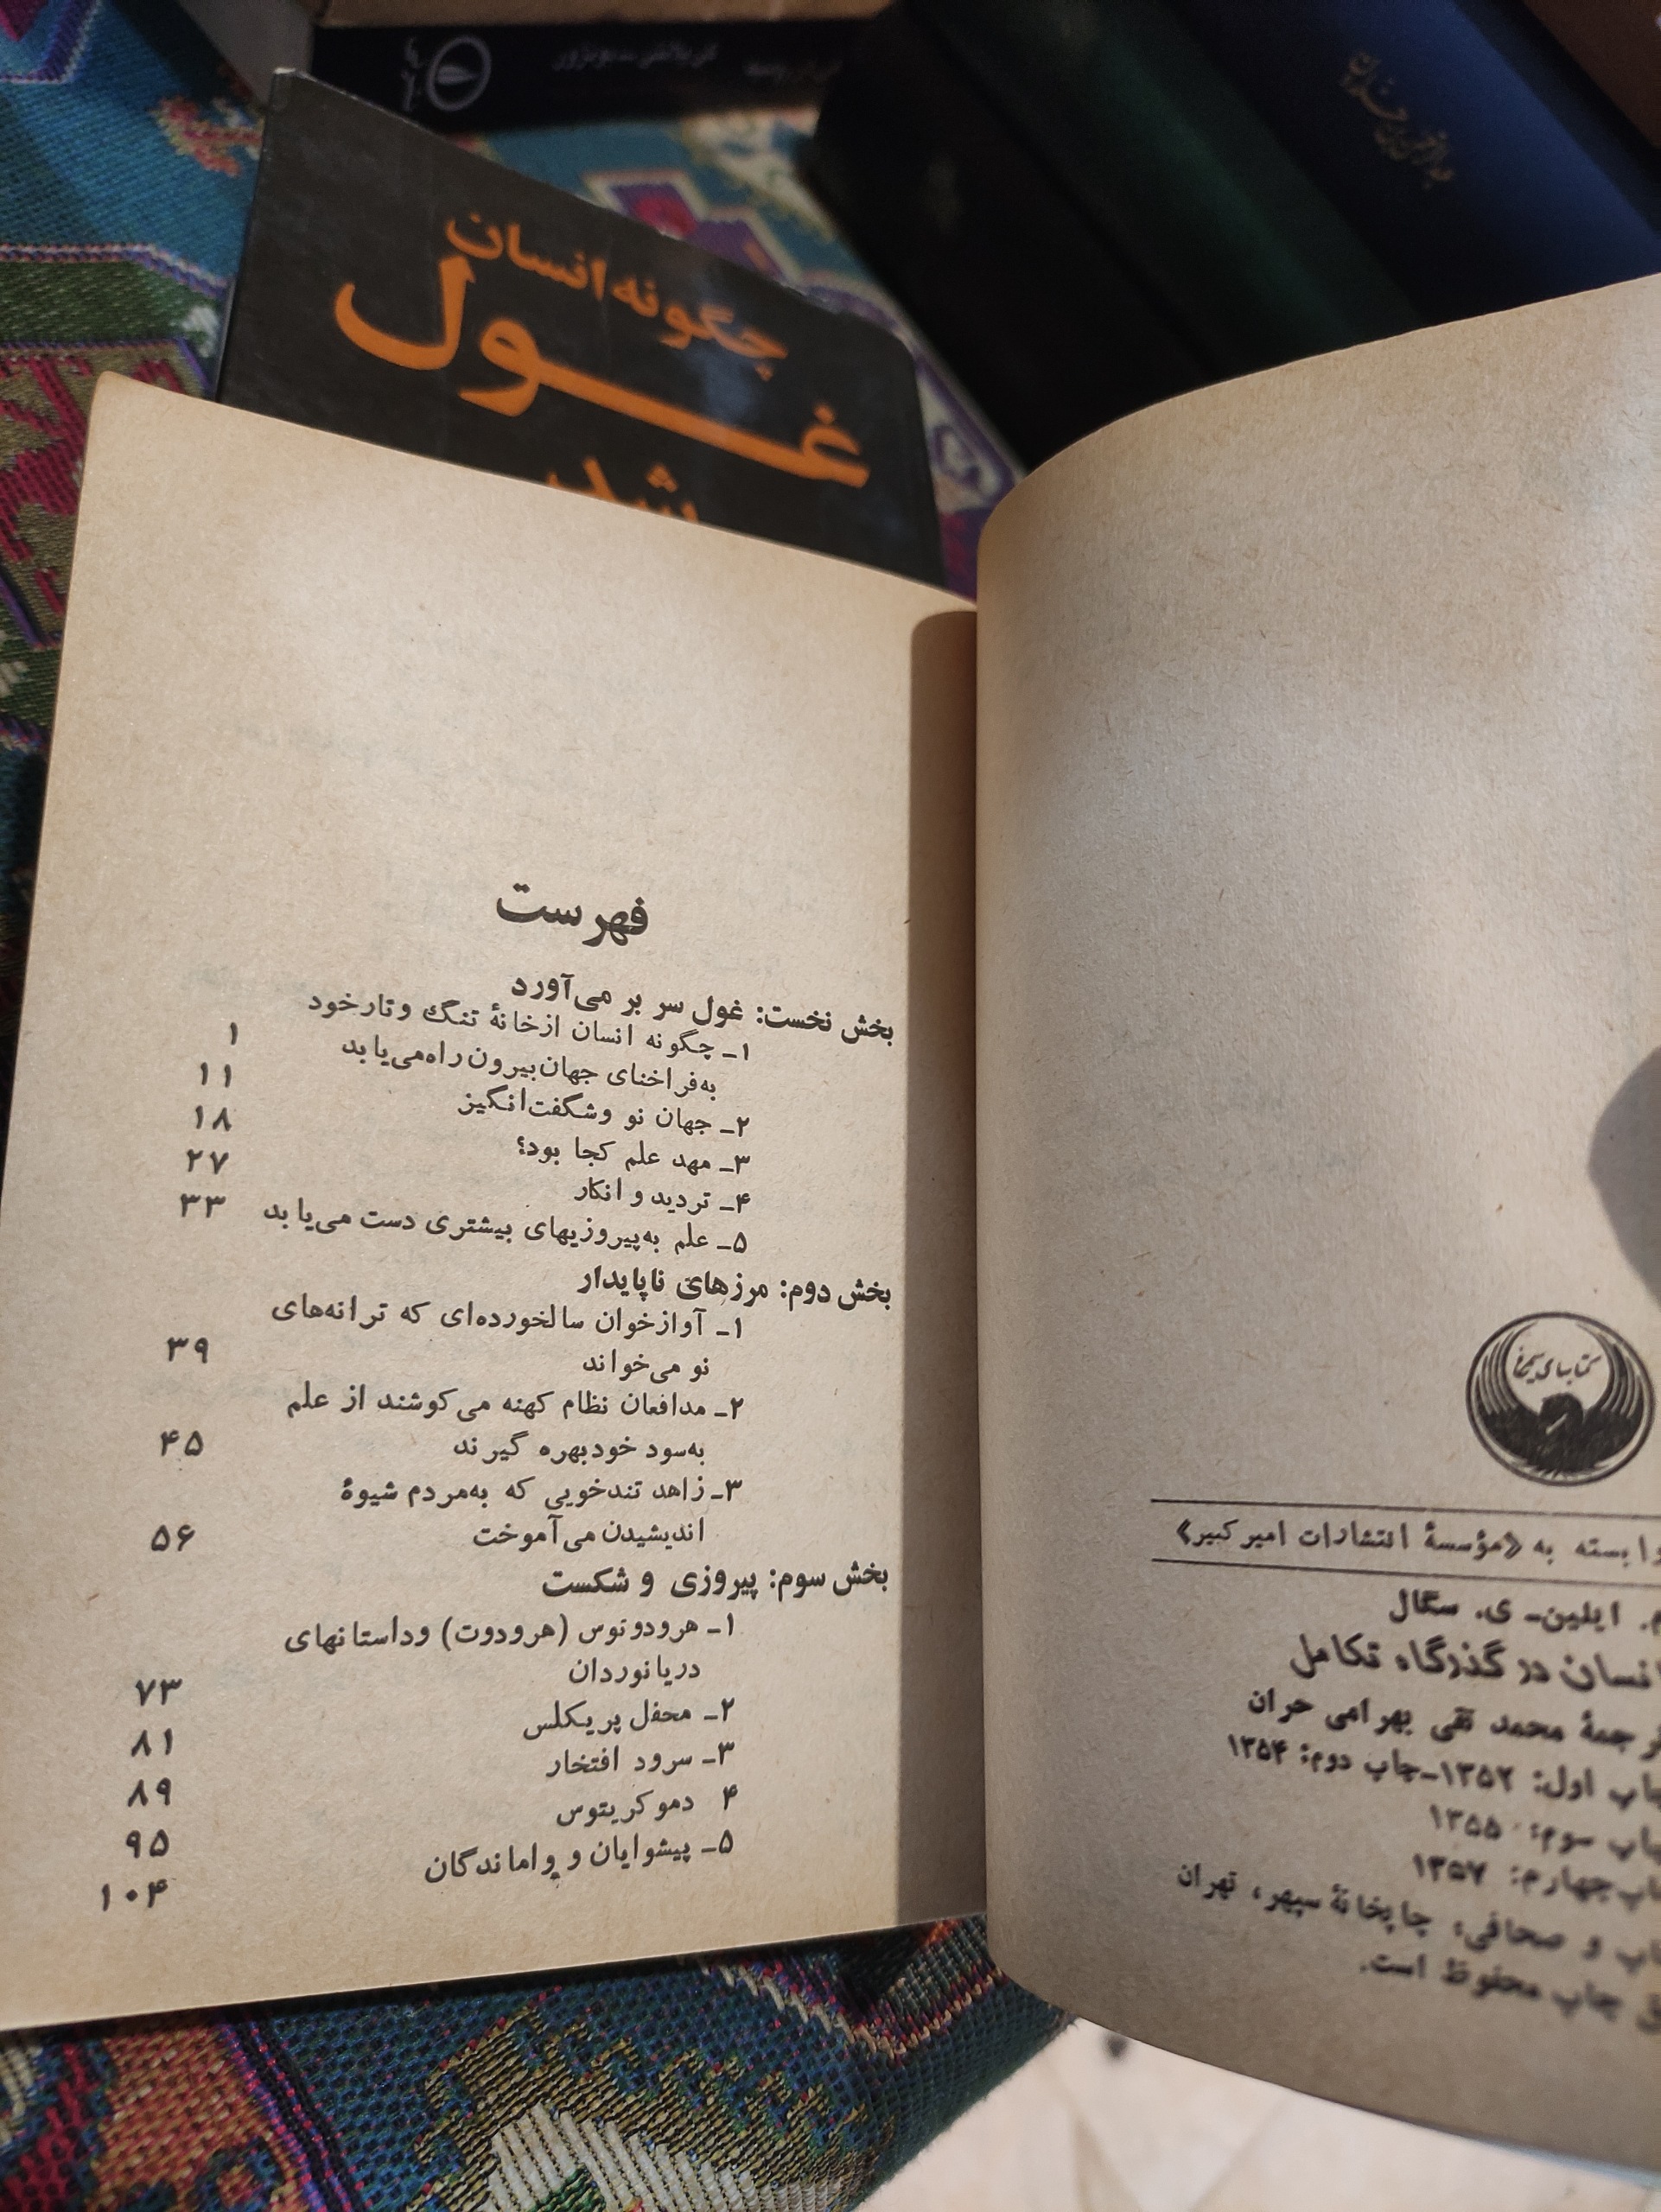 چگونه انسان
غول
شد
فهرست
بخش نخست: غول سر بر می‌آورد
۱ـ چگونه انسان ازخانهٔ تنگ وتارخود
به‌فراخنای جهان‌بیرون راه‌می‌یابد ۱
۲ـ جهان نو وشگفت‌انگیز ۱۱
۳ـ مهد علم کجا بود؟ ۱۸
۴ـ تردید و انکار ۲۷
۵ـ علم به‌پیروزیهای بیشتری دست می‌یابد ۳۳
بخش دوم: مرزهای ناپایدار
۱ـ آوازخوان سالخورده‌ای که ترانه‌های
نو می‌خواند ۳۹
۲ـ مدافعان نظام کهنه می‌کوشند از علم
به‌سود خودبهره گیرند ۴۵
۳ـ زاهد تندخویی که به‌مردم شیوهٔ
اندیشیدن می‌آموخت ۵۶
بخش سوم: پیروزی و شکست
۱ـ هرودوتوس (هرودوت) وداستانهای
دریانوردان ۷۳
۲ـ محفل پریکلس ۸۱
۳ـ سرود افتخار ۸۹
۴ دموکریتوس ۹۵
۵ـ پیشوایان و واماندگان ۱۰۴
کتابهای سیمرغ
وابسته به «مؤسسهٔ انتشارات امیرکبیر»
م. ایلین‌ـ ی. سگال
انسان در گذرگاه تکامل
ترجمهٔ محمد تقی بهرامی حران
چاپ اول: ۱۳۵۲ـ‌چاپ دوم: ۱۳۵۴
چاپ سوم: ۱۳۵۵
چاپ‌چهارم: ۱۳۵۷
چاپ و صحافی: چاپخانهٔ سپهر، تهران
چاپ محفوظ است.